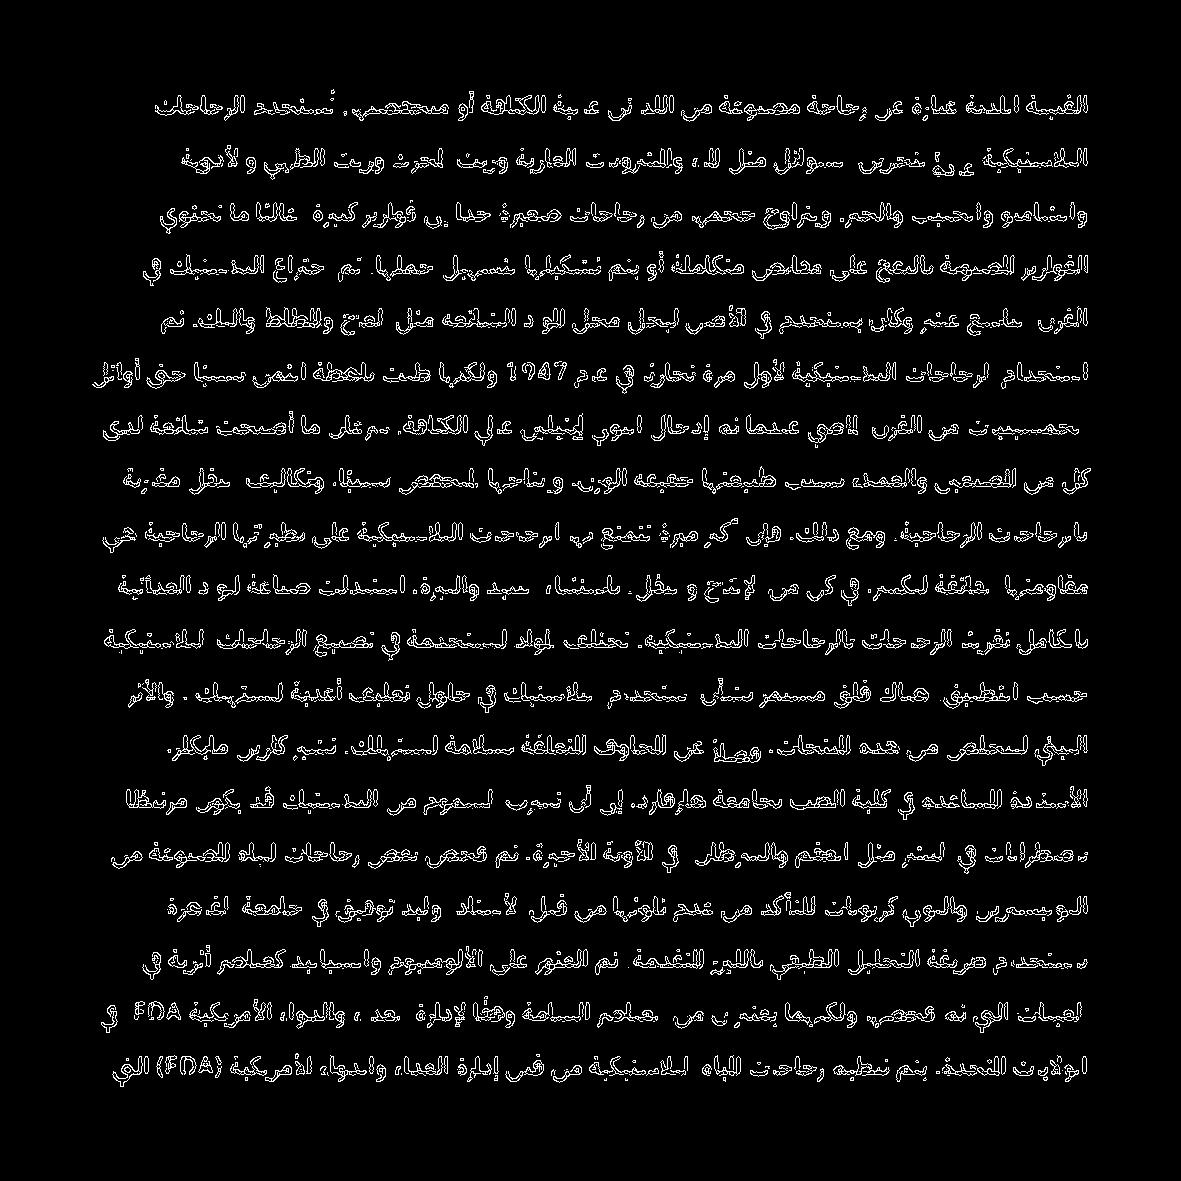 القنينة البلدنة عبارة عن زجاجة مصنوعة من اللدائن عالية الكثافة أو منخفضة. تُستخدم الزجاجات
البلاستيكية عادةً لتخزين السوائل مثل الماء والمشروبات الغازية وزيت المحرك وزيت الطهي والأدوية
والشامبو والحليب والحبر. ويتراوح حجمها من زجاجات صغيرة جدا إلى قوارير كبيرة. غالبًا ما تحتوي
القوارير المصنوعة بالنفخ على مقابض متكاملة أو يتم تشكيلها لتسهيل حملها. تم اختراع البلاستيك في
القرن التاسع عشر وكان يستخدم في الأصل ليحل محل المواد الشائعة مثل العاج والمطاط والعلك. تم
استخدام الزجاجات البلاستيكية لأول مرة تجاريًا في عام 1947 ولكنها ظلت باهظة الثمن نسبيًا حتى أوائل
خمسينيات من القرن الماضي عندما تم إدخال البولي إيثيلين عالي الكثافة. سرعان ما أصبحت شائعة لدى
كل من المصنعين والعملاء بسبب طبيعتها خفيفة الوزن. وإنتاجها المنخفض نسبيًا. وتكاليف النقل مقارنة
بالزجاجات الزجاجية. ومع ذلك. فإن أكبر ميزة تتمتع بها الزجاجات البلاستيكية على نظيراتها الزجاجية هي
مقاومتها الفائقة للكسر. في كل من الإنتاج والنقل. باستثناء النبيذ والبيرة. استبدلت صناعة المواد الغذائية
بالكامل تقريبًا الزجاجات بالزجاجات البلاستيكية. تختلف المواد المستخدمة في تصنيع الزجاجات البلاستيكية
حسب التطبيق. هناك قلق مستمر بشأن استخدام البلاستيك في حلول تغليف أغذية المستهلك. والأثر
البيئي للتخلص من هذه المنتجات. فضلاً عن المخاوف المتعلقة بسلامة المستهلك. تشير كارين مايكلز.
الأستاذة المساعدة في كلية الطب بجامعة هارفارد. إلى أن تسرب السموم من البلاستيك قد يكون مرتبطًا
باضطرابات في البشر مثل العقم والسرطان في الآونة الأخيرة. تم فحص بعض زجاجات المياه المصنوعة من
البوليسترين والبولي كربونات للتأكد من عدم تلوثها من قبل الأستاذ وليد توفيق في جامعة القاهرة
باستخدام طريقة التحليل الطيفي بالليزر المتقدمة. تم العثور على الألومنيوم والسيانيد كعناصر أثرية في
العينات التي تم فحصها. ولكنهما يعتبران من العناصر السامة وفقًا لإدارة الغذاء والدواء الأمريكية FDA في
الولايات المتحدة. يتم تنظيم زجاجات المياه البلاستيكية من قبل إدارة الغذاء والدواء الأمريكية (FDA) التي